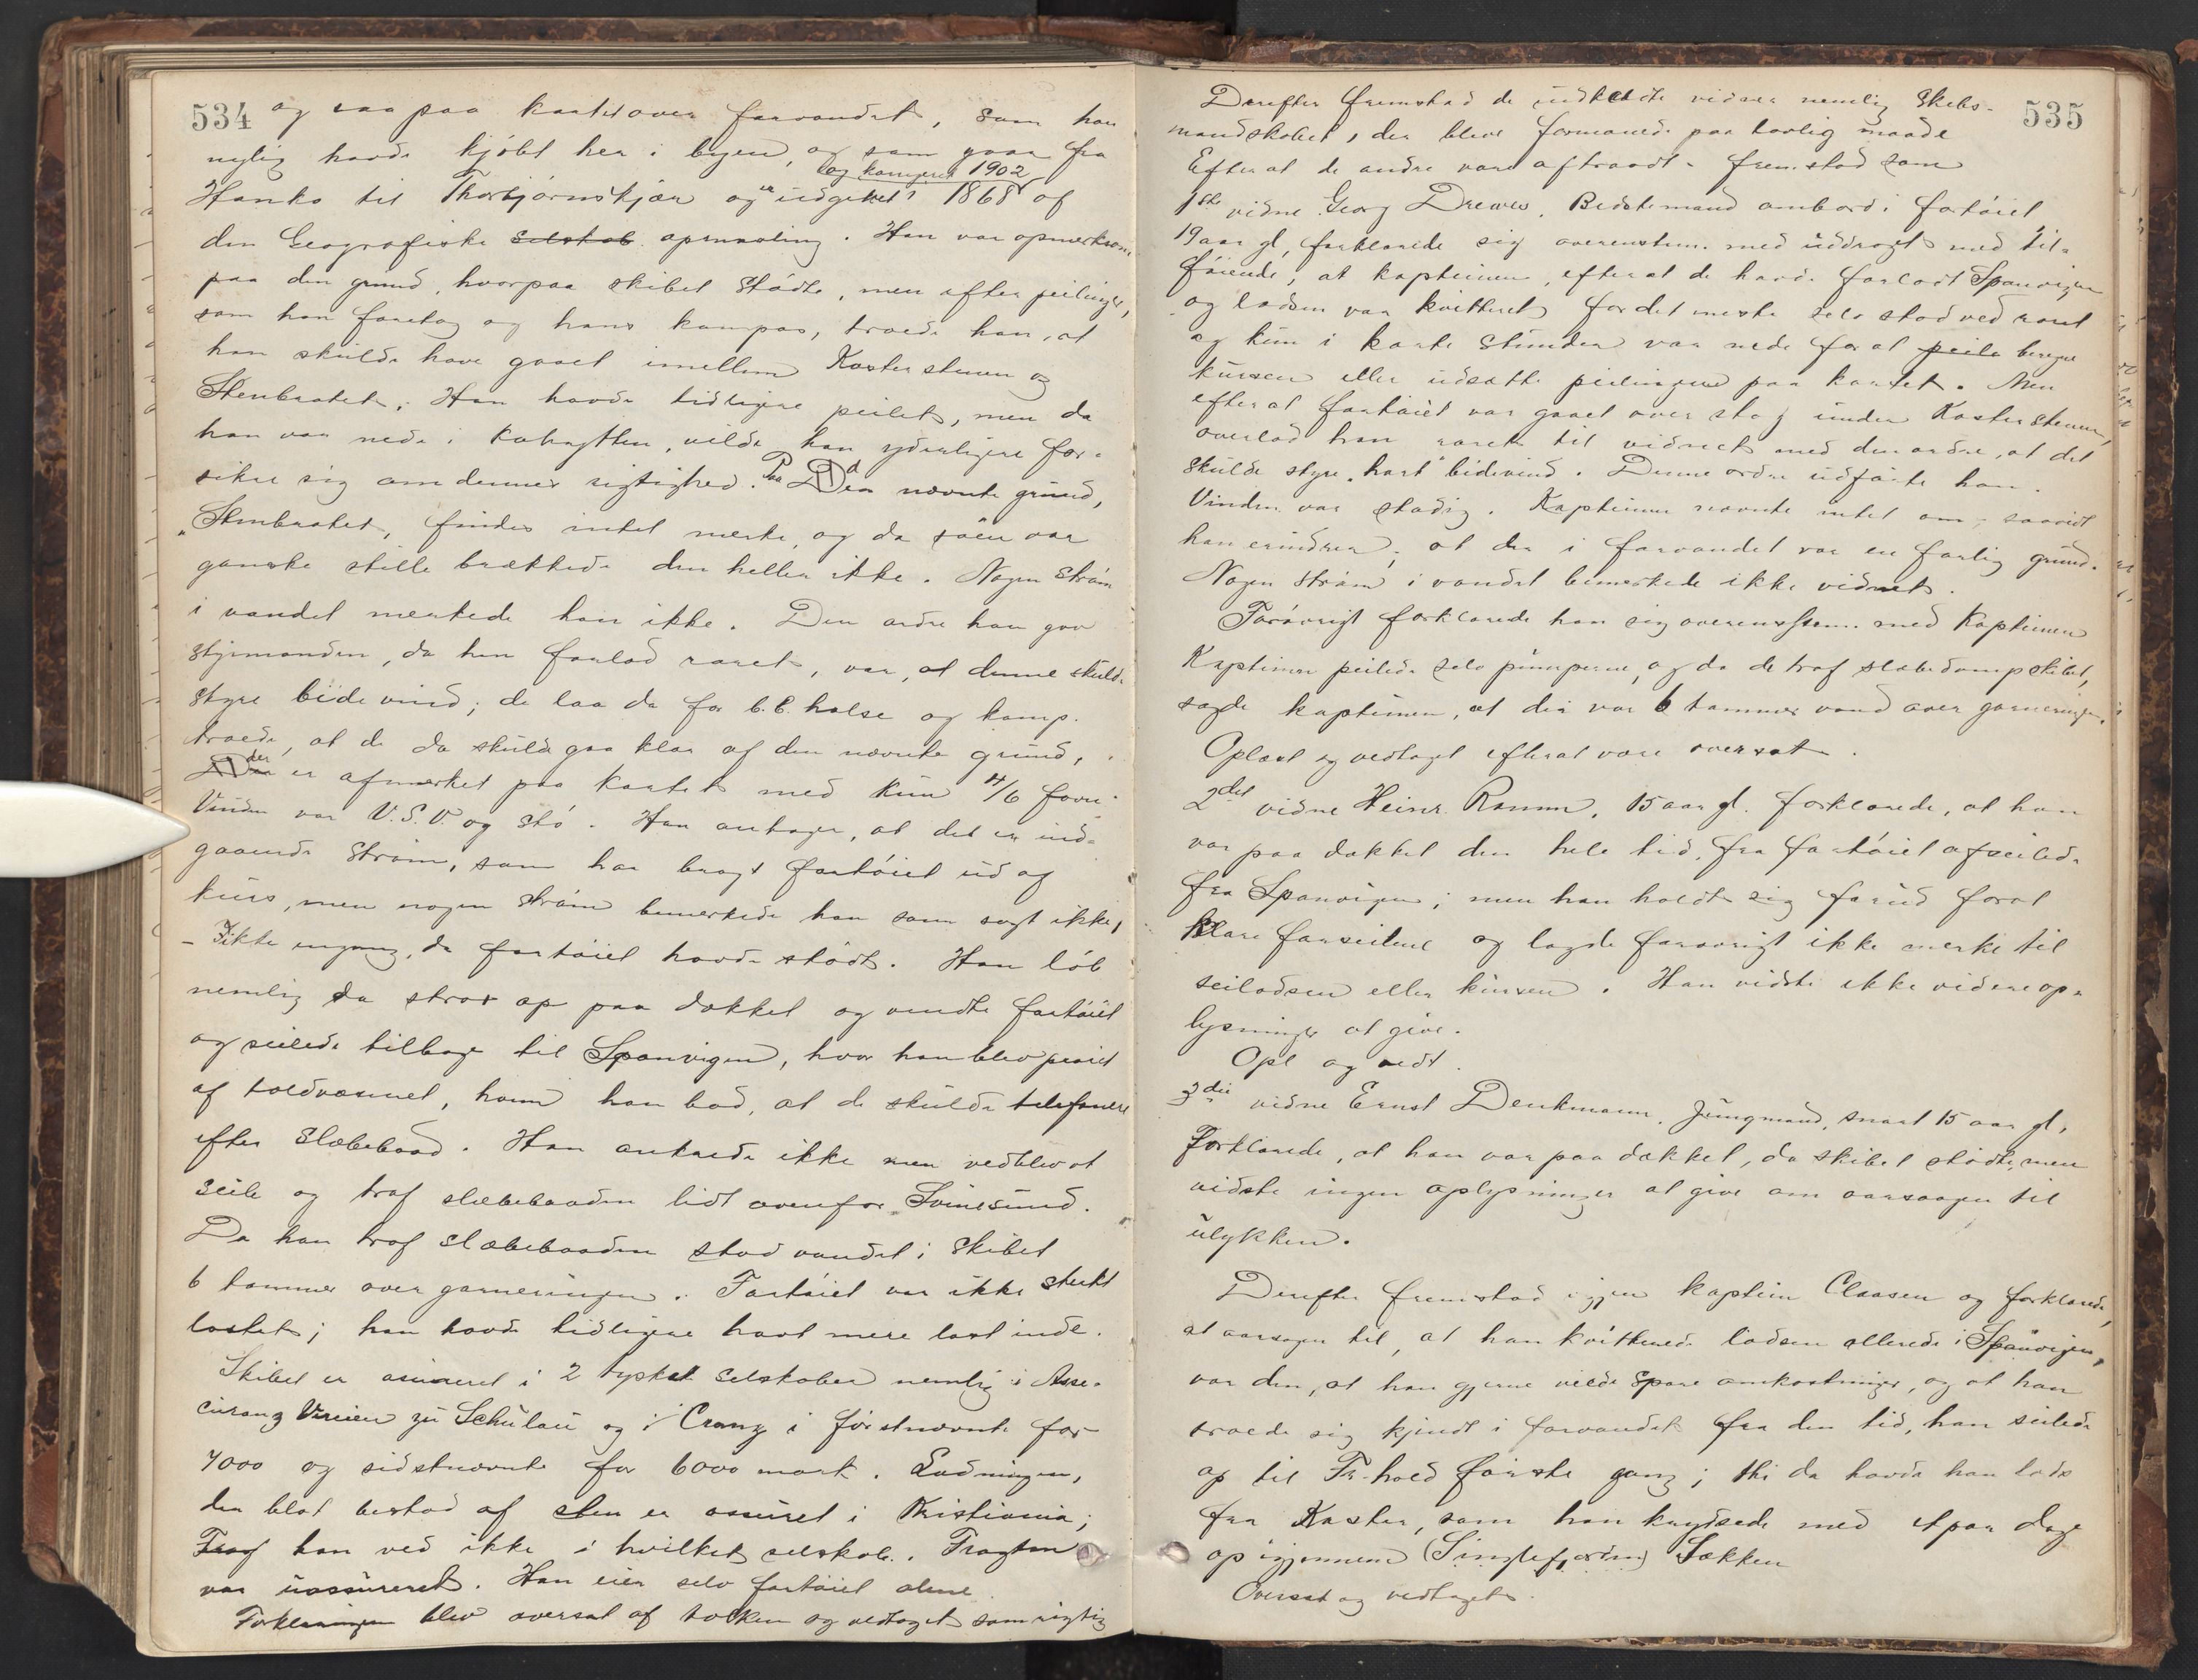 534
og saa paa kartet over farvandet, som han
nylig havde kjöbt her i byen, og som gaar fra
og korrigeret 1902
Hankø til Thorbjørnskjær og er udgivet 1868 af
den Geografiske selskab opmaaling. Han var opmerksom
paa den grund, hvorpaa skibet stödte, men efter peilinger,
som han foretog og hans kompas, troede han, at
han skulde have gaaet imellem Kostersteinen og
Stenbraatet. Han havde tidligere peilet, men da
han var nede i kahytten, vilde han yderligere for-
sikre sig om dennes rigtighed. Paa den nævnte grund,
"Stenbraatet, findes intet merke, og da söen var
ganske stille brækkede den heller ikke. Nogen ström
i vandet merkede han ikke. Den ordre han gav
styrmanden, da han forlod roret, var, at denne skulde
styre bidevind; de laa da for b.b. halse og komp.
troede, at de da skulde gaa klar af den nævnte grund,
der er afmerket paa kartet med kun 4/6 favn.
Vinden var V.S.V. og stö. Han antager, at det er ind-
gaaende ström, som har bragt fartöiet ud af
kurs, men nogen ström bemerkede han som sagt ikke,
- Ikke engang, da fartöiet havde stödt. Han löb
nemlig da strax op paa dækket og vendte fartöiet
og seilede tilbage til Spanvigen, hvor han blev praiet
af toldvæsenet, hvem han bad, at de skulde telefonere
efter slæbebaad. Han ankrede ikke men vedblev at
seile og traf slæbebaaden lidt ovenfor Svinesund.
Da han traf slæbebaaden stod vandet i skibet
6 tommer over garneringen. Fartöiet var ikke sterkt
lastet; han havde tidligere havt mere last inde.
Skibet er assureret i 2 tyske selskaber nemlig i Asse-
curanz Vereien zu Schulau og i Cranz i förstnævnte for
7000 og sidstnævnte for 6000 mark. Ladningen,
der blot bestod af sten er assuret i Kristiania;
han ved ikke i hvilket selskab. Fragten
var uassureret. Han eier selv fartöiet alene.
Forklaringen blev oversat af tolken og vedtaget som rigtig
535
Derefter fremstod de indkaldte vidner nemlig Skibs-
mandskabet, der bleve formanede paa lovlig maade
Efterat de andre vare aftraadt - fremstod som
1ste vidne Georg Drewes. Bedstemand ombord i fartöiet
19 aar gl, forklarede sig overenstem. med uddraget med til-
föiende, at kapteinen, efterat de havde forladt Spanvigen
og lodsen var kvitteret for det meste selv stod ved roret
og kun i korte stunder var nede for at peile beregne
kursen eller udsætte peilingerne paa kartet. Men
efterat fartöiet var gaaet over stag under Kostersteinen,
overlod han roret til vidnet med den ordre, at det
skulde styre "hart" bidevind. Denne ordre udförte han.
Vinden var stadig. Kapteinen nævnte intet om, saavidt
han erindrer, at der i farvandet var en farlig grund.
Nogen ström i vandet bemerkede ikke vidnet.
Forövrigt forklarede han sig overensstem. med Kapteinen
Kapteinen peilede selv pumperne, og da de traf slæbedampskibet,
sagde kapteinen, at der var 6 tommer vand over garneringen.
Oplæst og vedtaget efterat være oversat.
2det vidne Heinr. Ramm, 15 aar gl. forklarede, at han
var paa dækket den hele tid, fra fartöiet afseilede
fra Spanvigen; men han holdt sig forud forat
klare forseilene og lagde forövrigt ikke merke til
seiladsen eller kursen. Han vidste ikke videre op-
lysninger at give.
Opl og vedt.
3die vidne Ernst Denkmann. Jungmand, snart 15 aar gl,
Forklarede, at han var paa dækket, da skibet stödte, men
vidste ingen oplysninger at give om aarsagen til
ulykken.
Derefter fremstod igjen kaptein Claasen og forklarede,
at aarsagen til, at han kvitterede lodsen allerede i Spanvigen,
var den, at han gjerne vilde spare omkostninger, og at han
troede sig kjendt i farvandet fra den tid, han seilede
op til Fr.hald förste gang; thi da havde han lods
fra Koster, som han krydsede med et par dage
op igjennem (Singlefjorden) Sækken
Oversat og vedtaget.